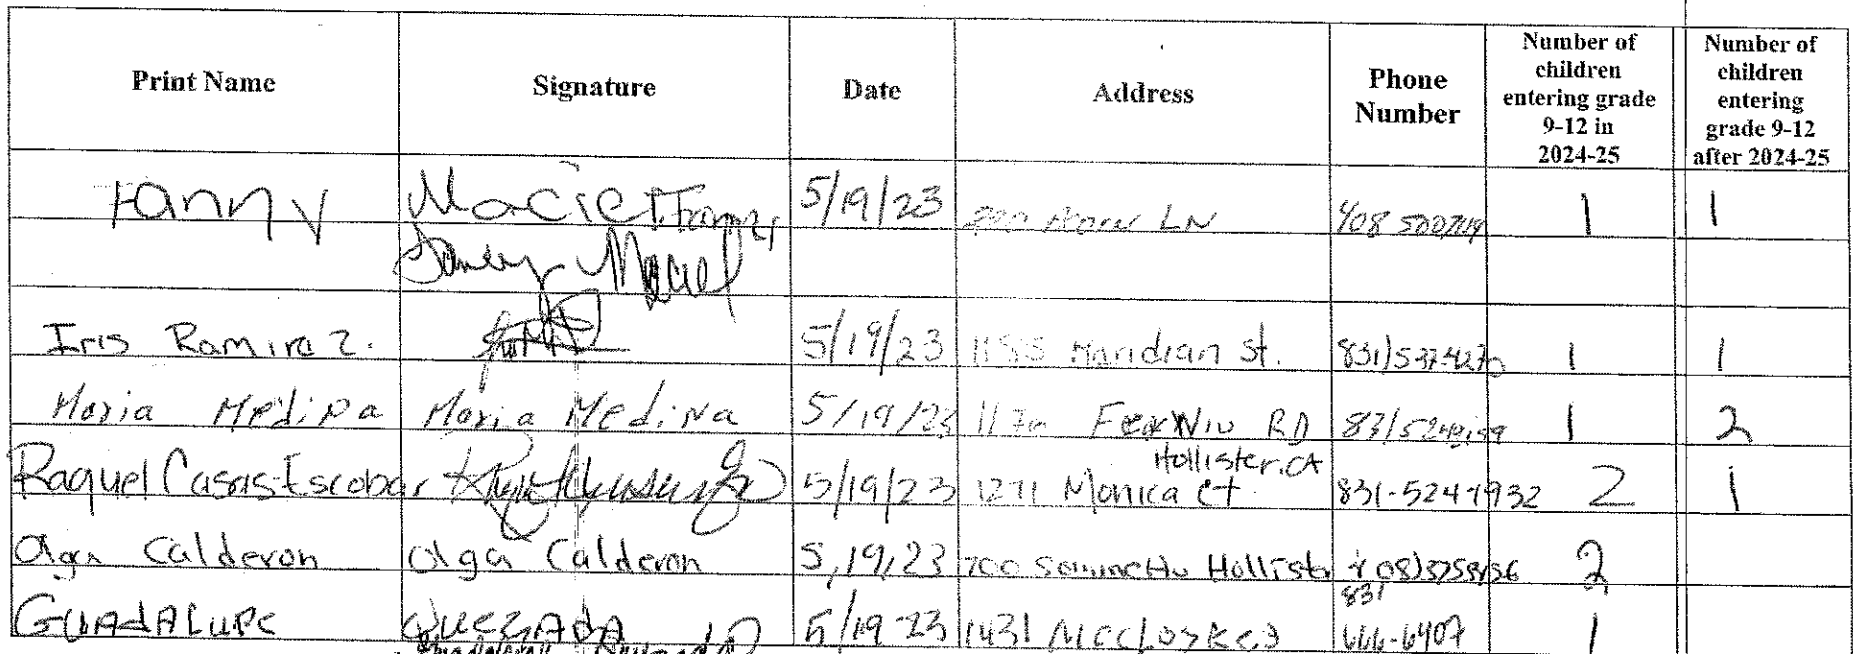 Print Name Signature Date Address Phone Number Number of children entering grade 9-12 in 2024-25 Number of children entering grade 9-12 after 2024-25
Fanny Maciel Fanny 5/19/23 LN 408 1 1
Fanny Maciel
Iris Ramirez. 5/19/23 1185 Maridian St. 831) 537-4270 1 1
Maria Medina Maria Medina 5/19/23 RD 831 1 2
Hollister, CA
Raquel Casas-Escobar 5/19/23 1271 Monica Ct 831-524-1932 2 1
Olga Calderon Olga Calderon 5,19,23 700 Hollister 2
831
GUADALUPE QUEZADA 5/19-23 1431 McCloskey 666-6407 1